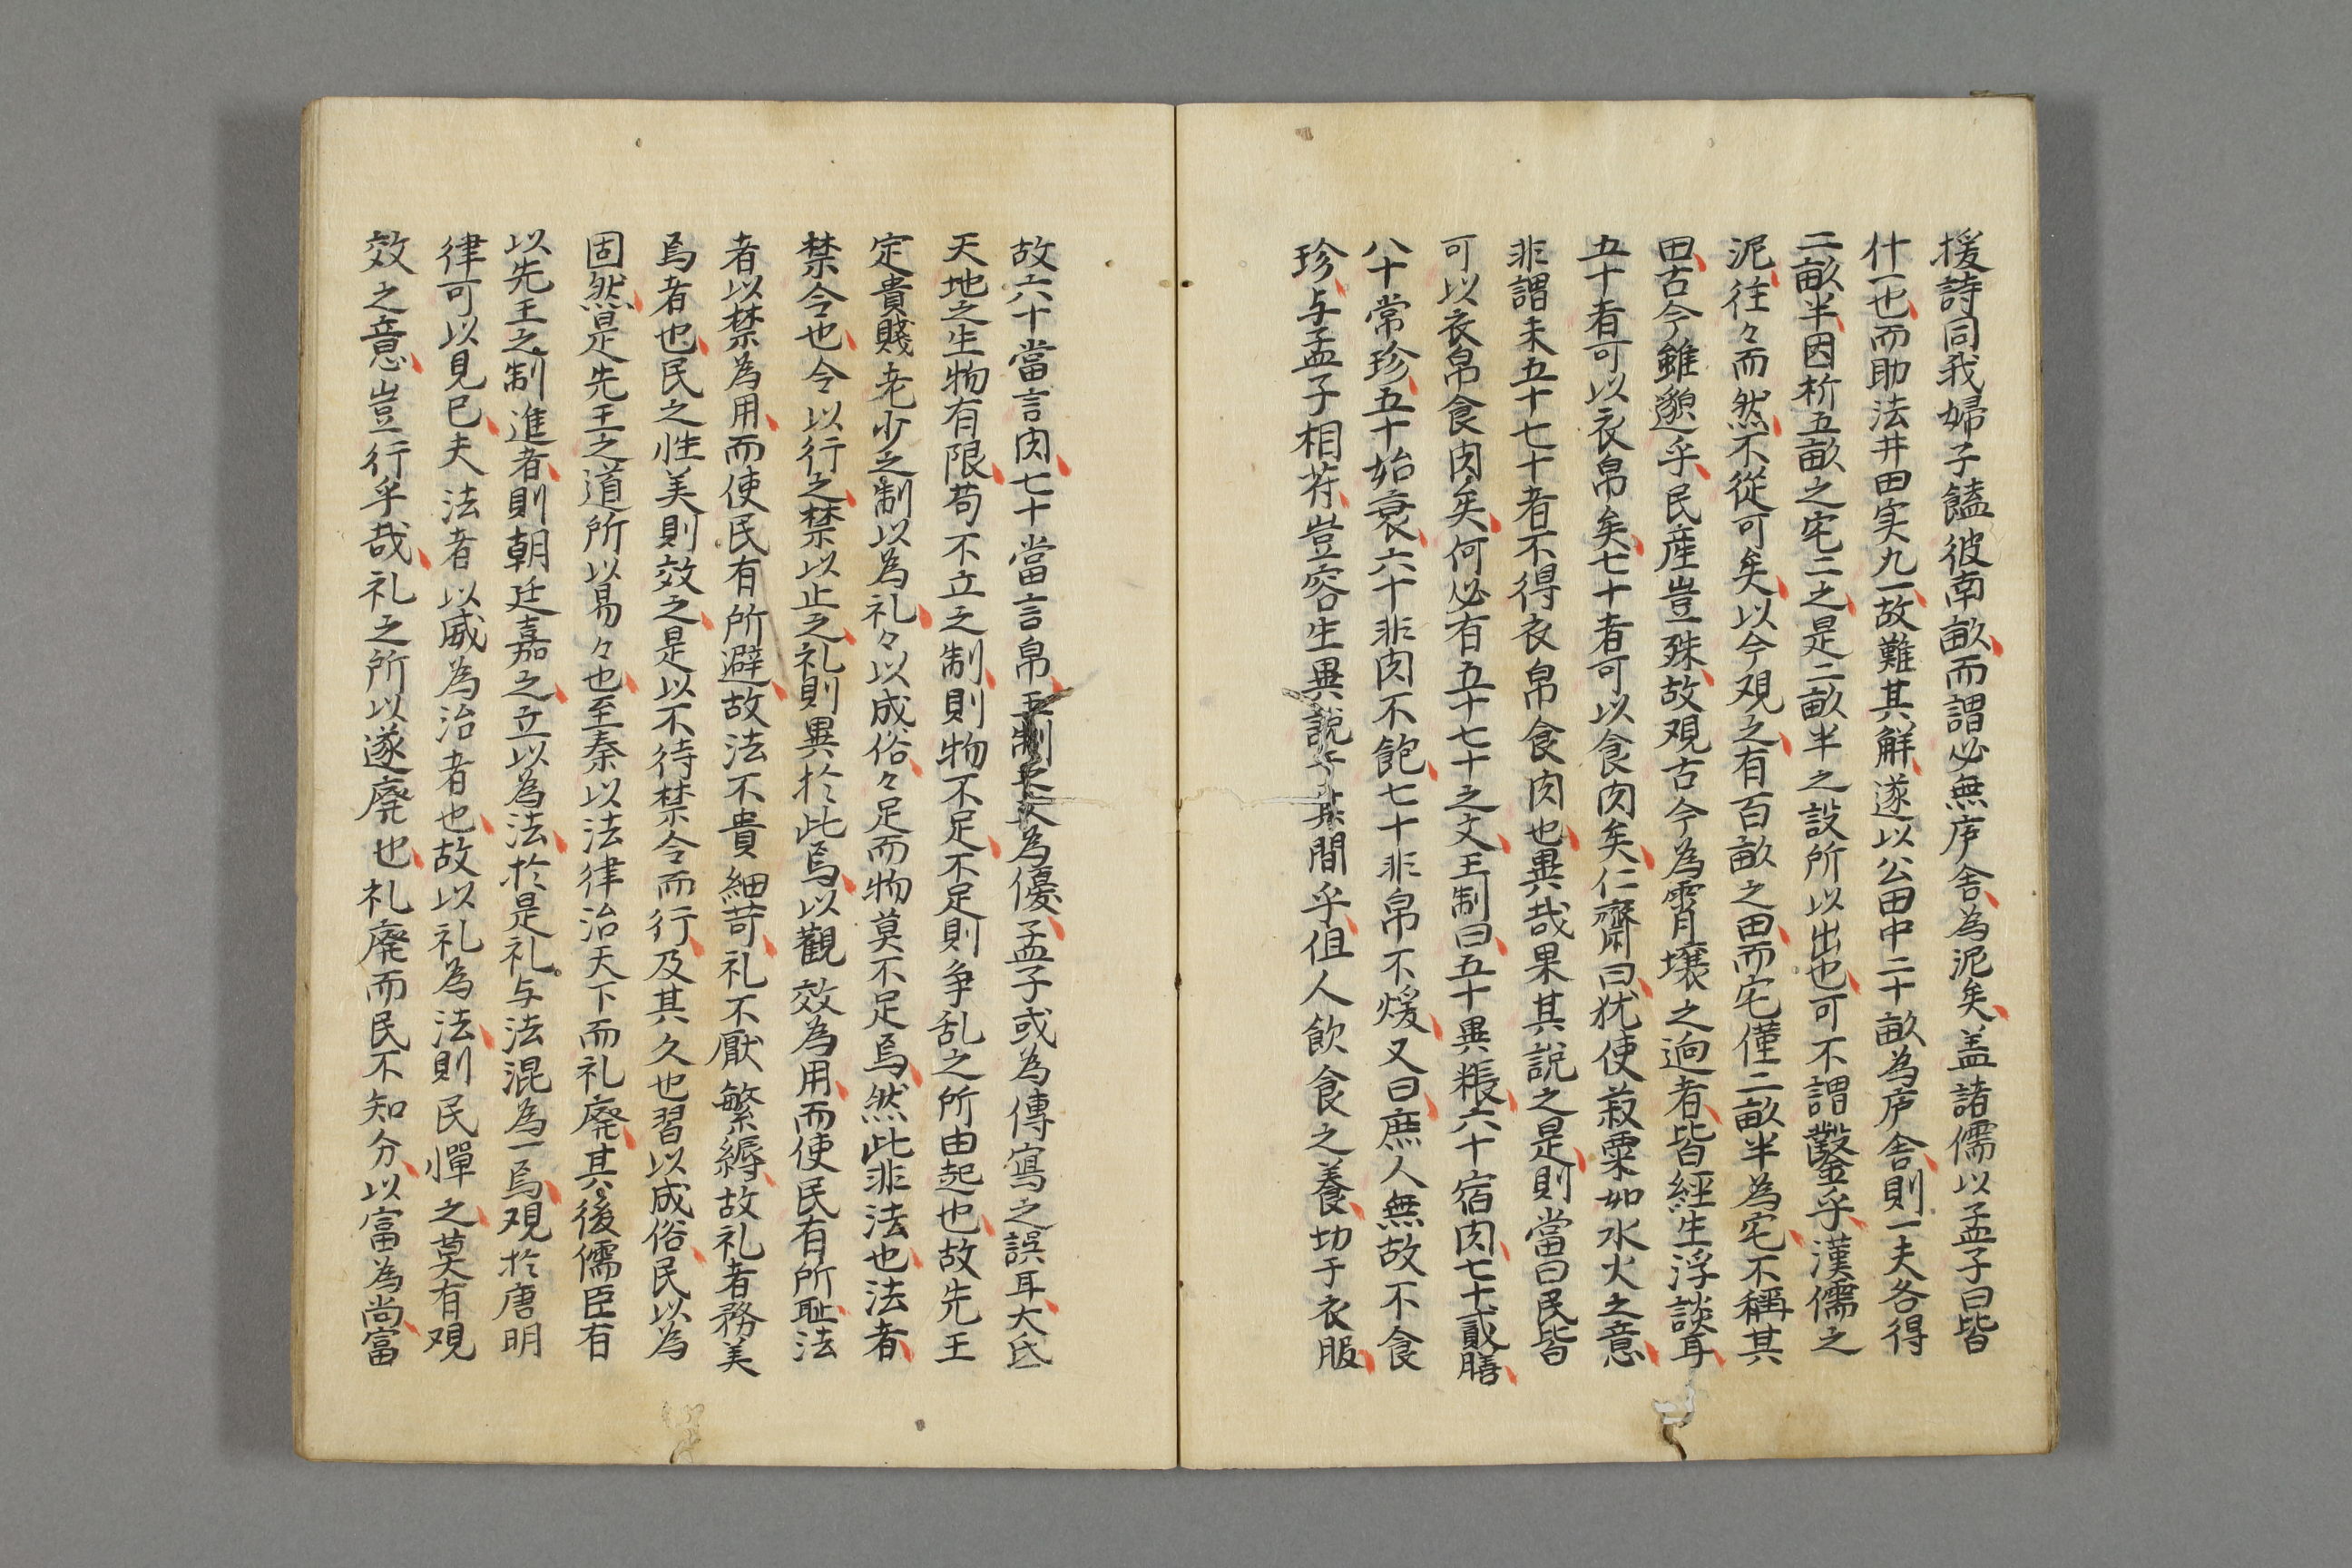 援詩同我婦子饁彼南畝而謂必無庐舎為泥矣盖諸儒以孟子曰皆
什一也而助法井田実九一故難其解遂以公田中二十畝為庐舎則一夫各得
二畝半因析五畝之宅二之是二畝半之設所以出也可不謂鑿乎漢儒之
泥往々而然不従可矣以今观之有百畝之田而宅僅二畝半為宅不稱其
田古今雖邈乎民産豈殊故观古今為霄壌之逈者皆經生浮談耳
五十者可以衣帛矣七十者可以食肉矣仁齋曰犹使菽粟如水火之意
非謂未五十七十者不得衣帛食肉也異哉果其説之是則當曰民皆
可以衣帛食肉矣何必有五十七十之文王制曰五十異粻六十宿肉七十貳膳
八十常珍五十始衰六十非肉不飽七十非帛不煖又曰庶人無故不食
珍与孟子相符豈容生異説于其間乎但人飲食之養切于衣服
故六十當言肉七十當言帛王制為優孟子或為傳寫之誤耳大氐
天地之生物有限苟不立之制則物不足不足則争乱之所由起也故先王
定貴賤老少之制以為礼々以成俗々足而物莫不足焉然此非法也法者
禁令也令以行之禁以止之礼則異於此焉以觀效為用而使民有所耻法
者以禁為用而使民有所避故法不貴細苛礼不厭繁縟故礼者務美
焉者也民之性美則效之是以不待禁令而行及其久也習以成俗民以為
固然是先王之道所以易々也至秦以法律治天下而礼廃其後儒臣有
以先王之制進者則朝廷嘉之立以為法於是礼与法混為一焉观於唐明
律可以見已夫法者以威為治者也故以礼為法則民憚之莫有观
效之意豈行乎哉礼之所以遂廃也礼廃而民不知分以富為尚富